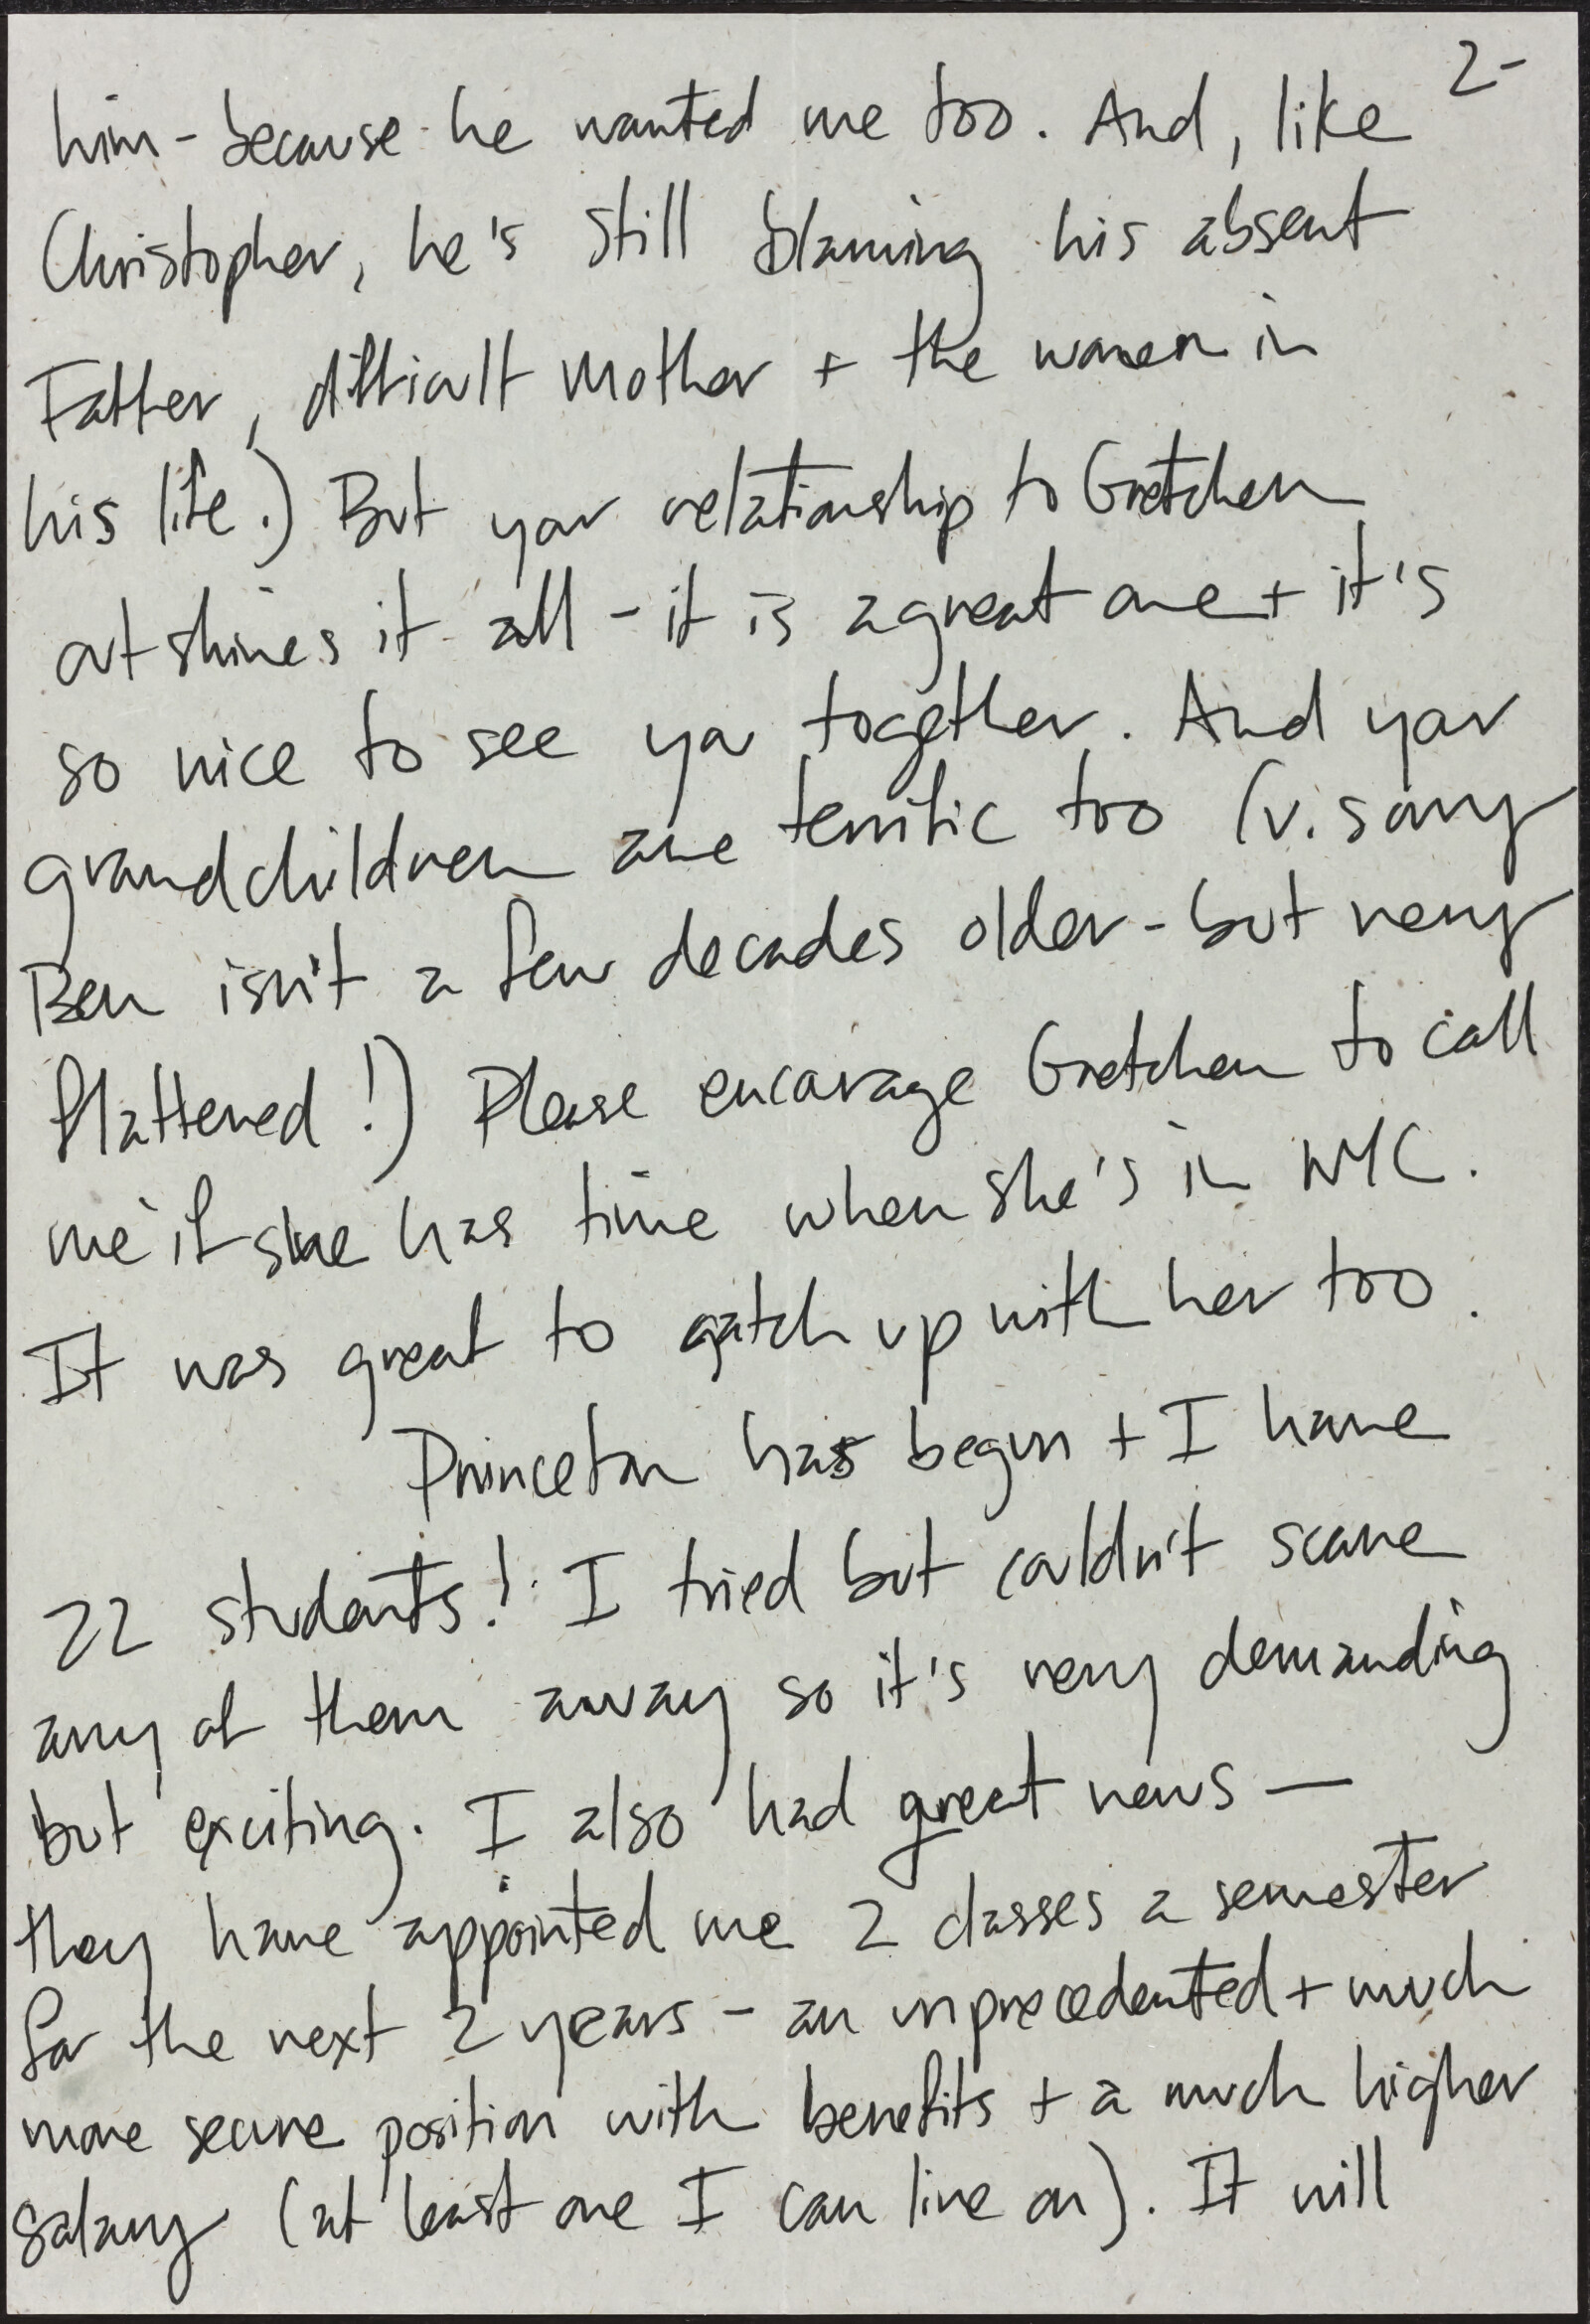 2-
him - because he wanted me too. And, like
Christopher, he's still blaming his absent
Father, difficult mother + the women in
his life.) But your relationship to Gretchen
outshines it all - it is a great one + it's
so nice to see you together. And your
grandchildren are terrific too (v. sorry
Ben isn't a few decades older - but very
flattered!) Please encourage Gretchen to call
me if she has time when she's in NYC.
It was great to catch up with her too.
Princeton has begun + I have
22 students! I tried but couldn't scare
any of them away so it's very demanding
but exciting. I also had great news —
they have appointed me 2 classes a semester
for the next 2 years - an unprecedented + much
more secure position with benefits + a much higher
salary (at least one I can live on). It will